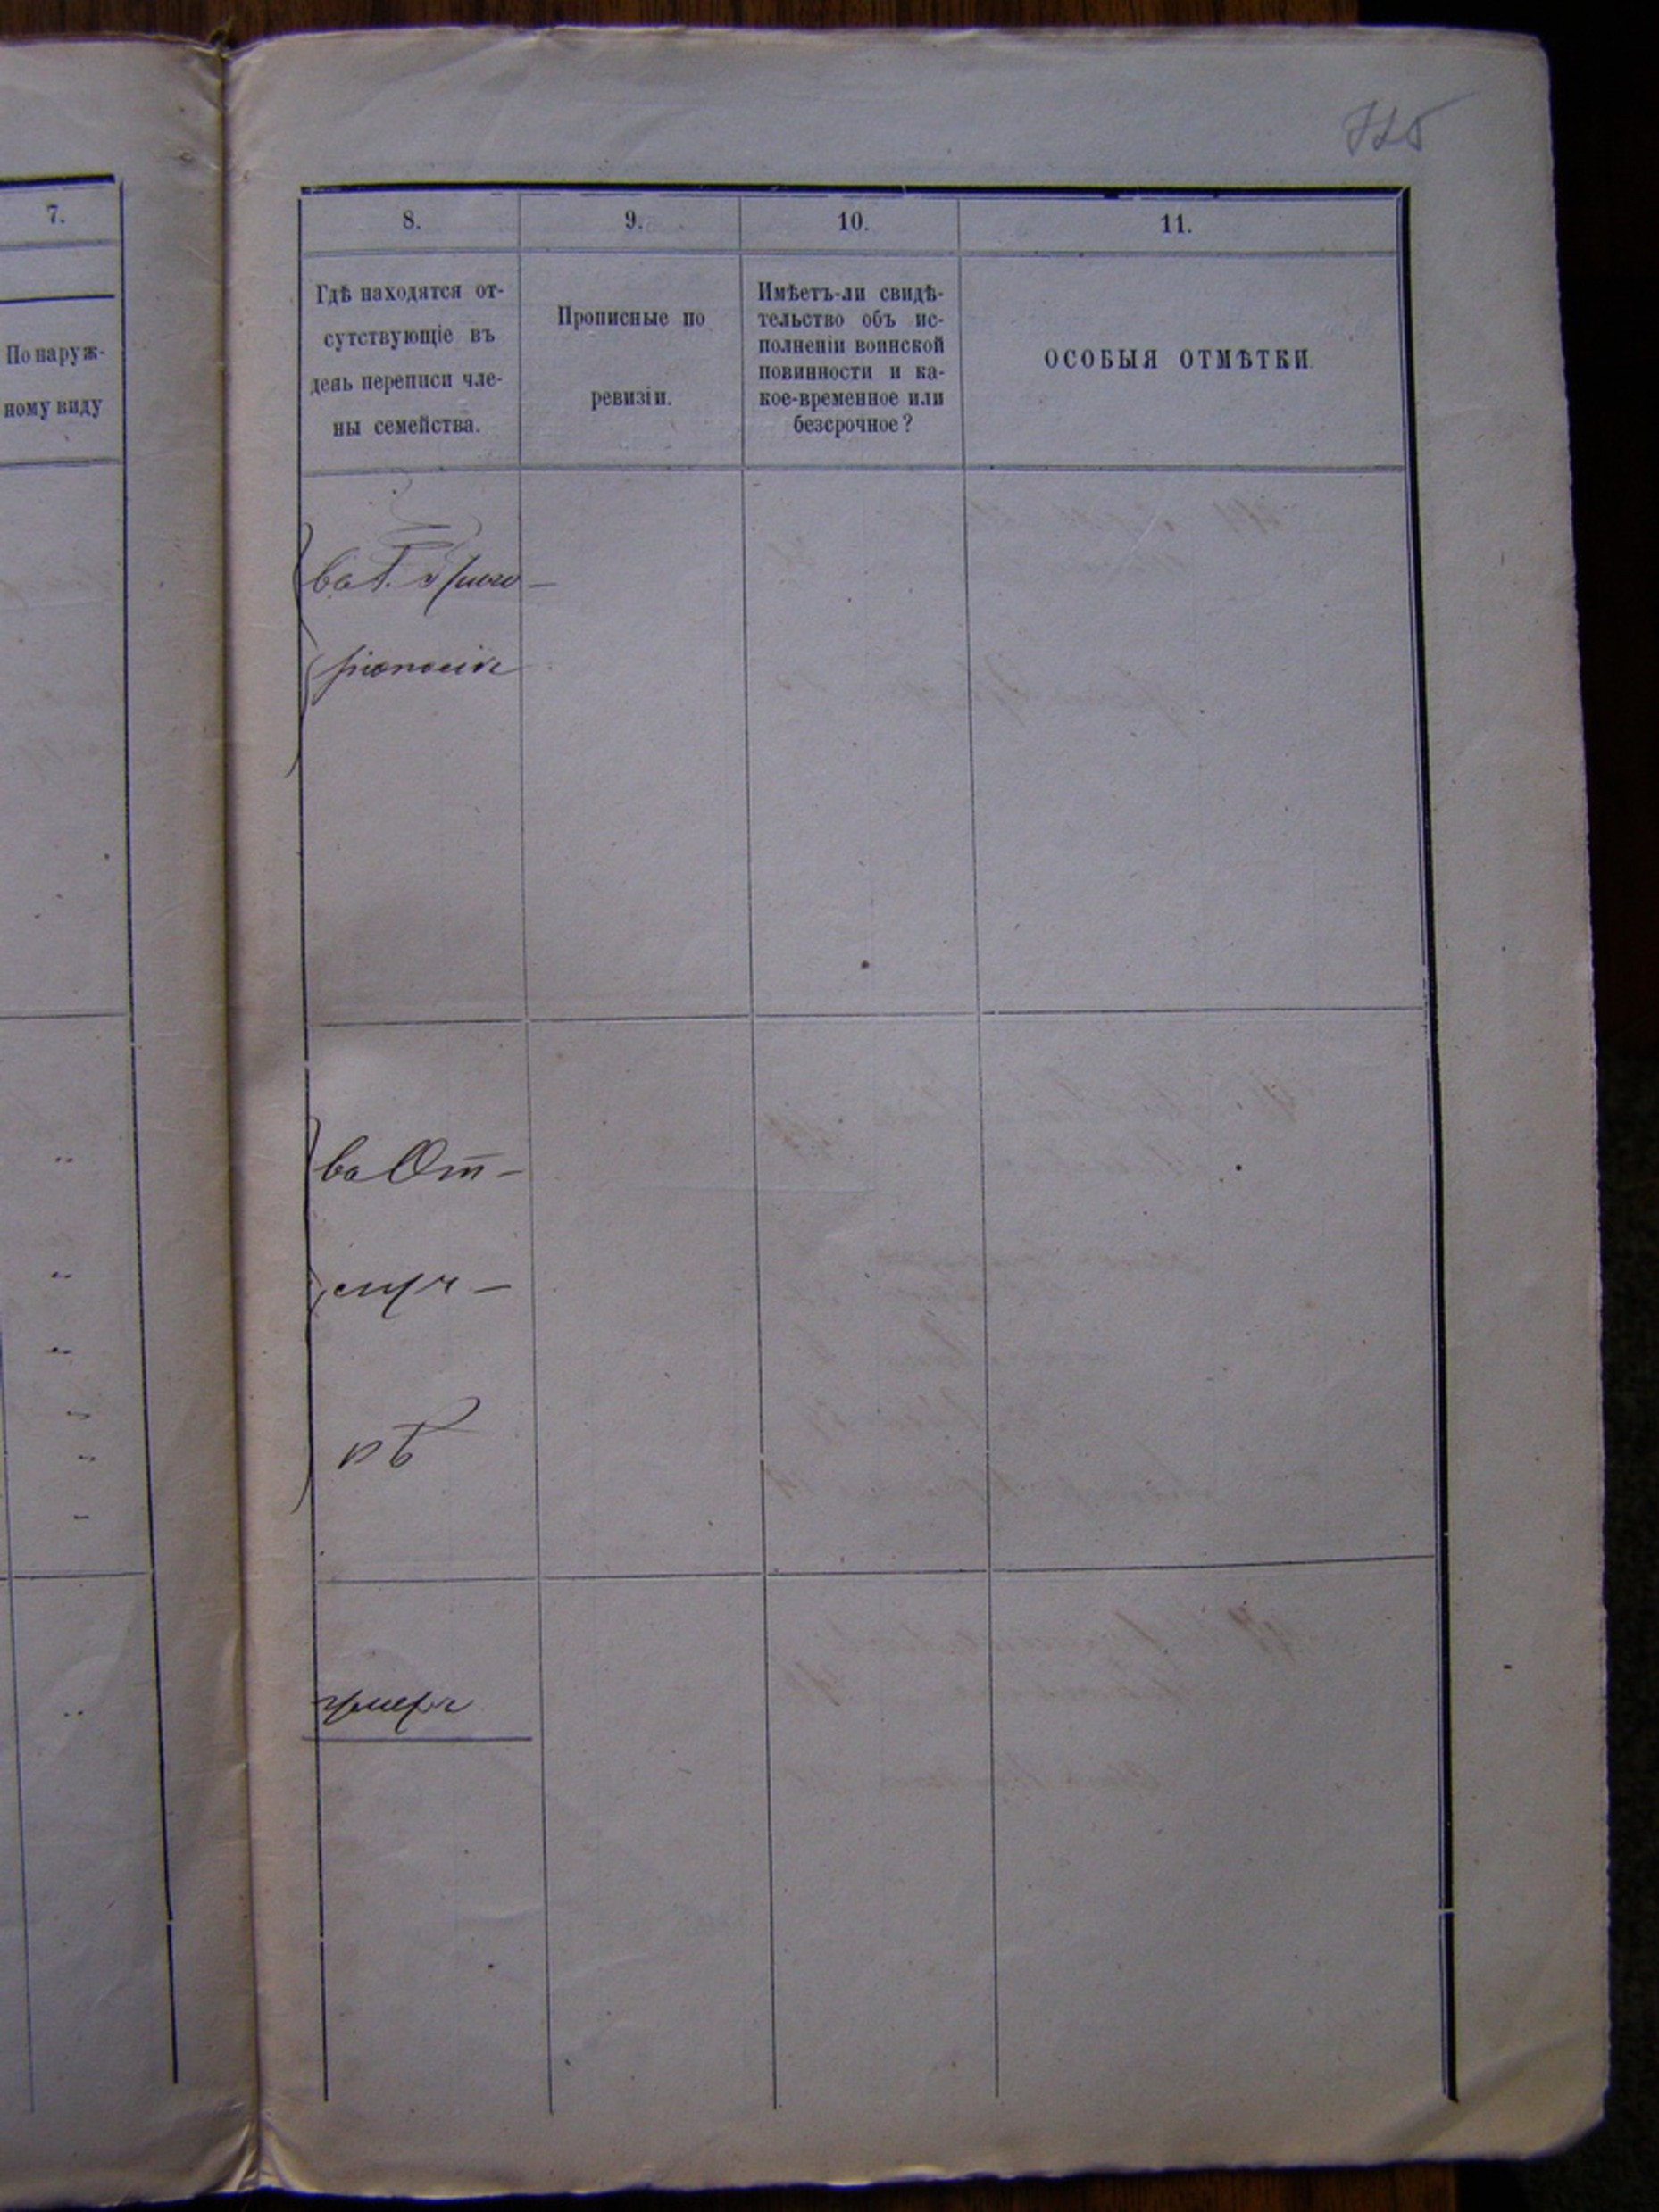 7.
По наруж-
ному виду
8.
9.
10.
11.
Гдѣ находятся от-
сутствующіе въ
день переписи чле-
ны семейства.
Прописные по
ревизіи.
Имѣетъ-ли свидѣ-
тельство объ ис-
полненіи воинской
повинности и ка-
кое-временное или
безсрочное?
ОСОБЫЯ ОТМѢТКИ.
ва Г.
ва От-
луч-
кѣ
умеръ